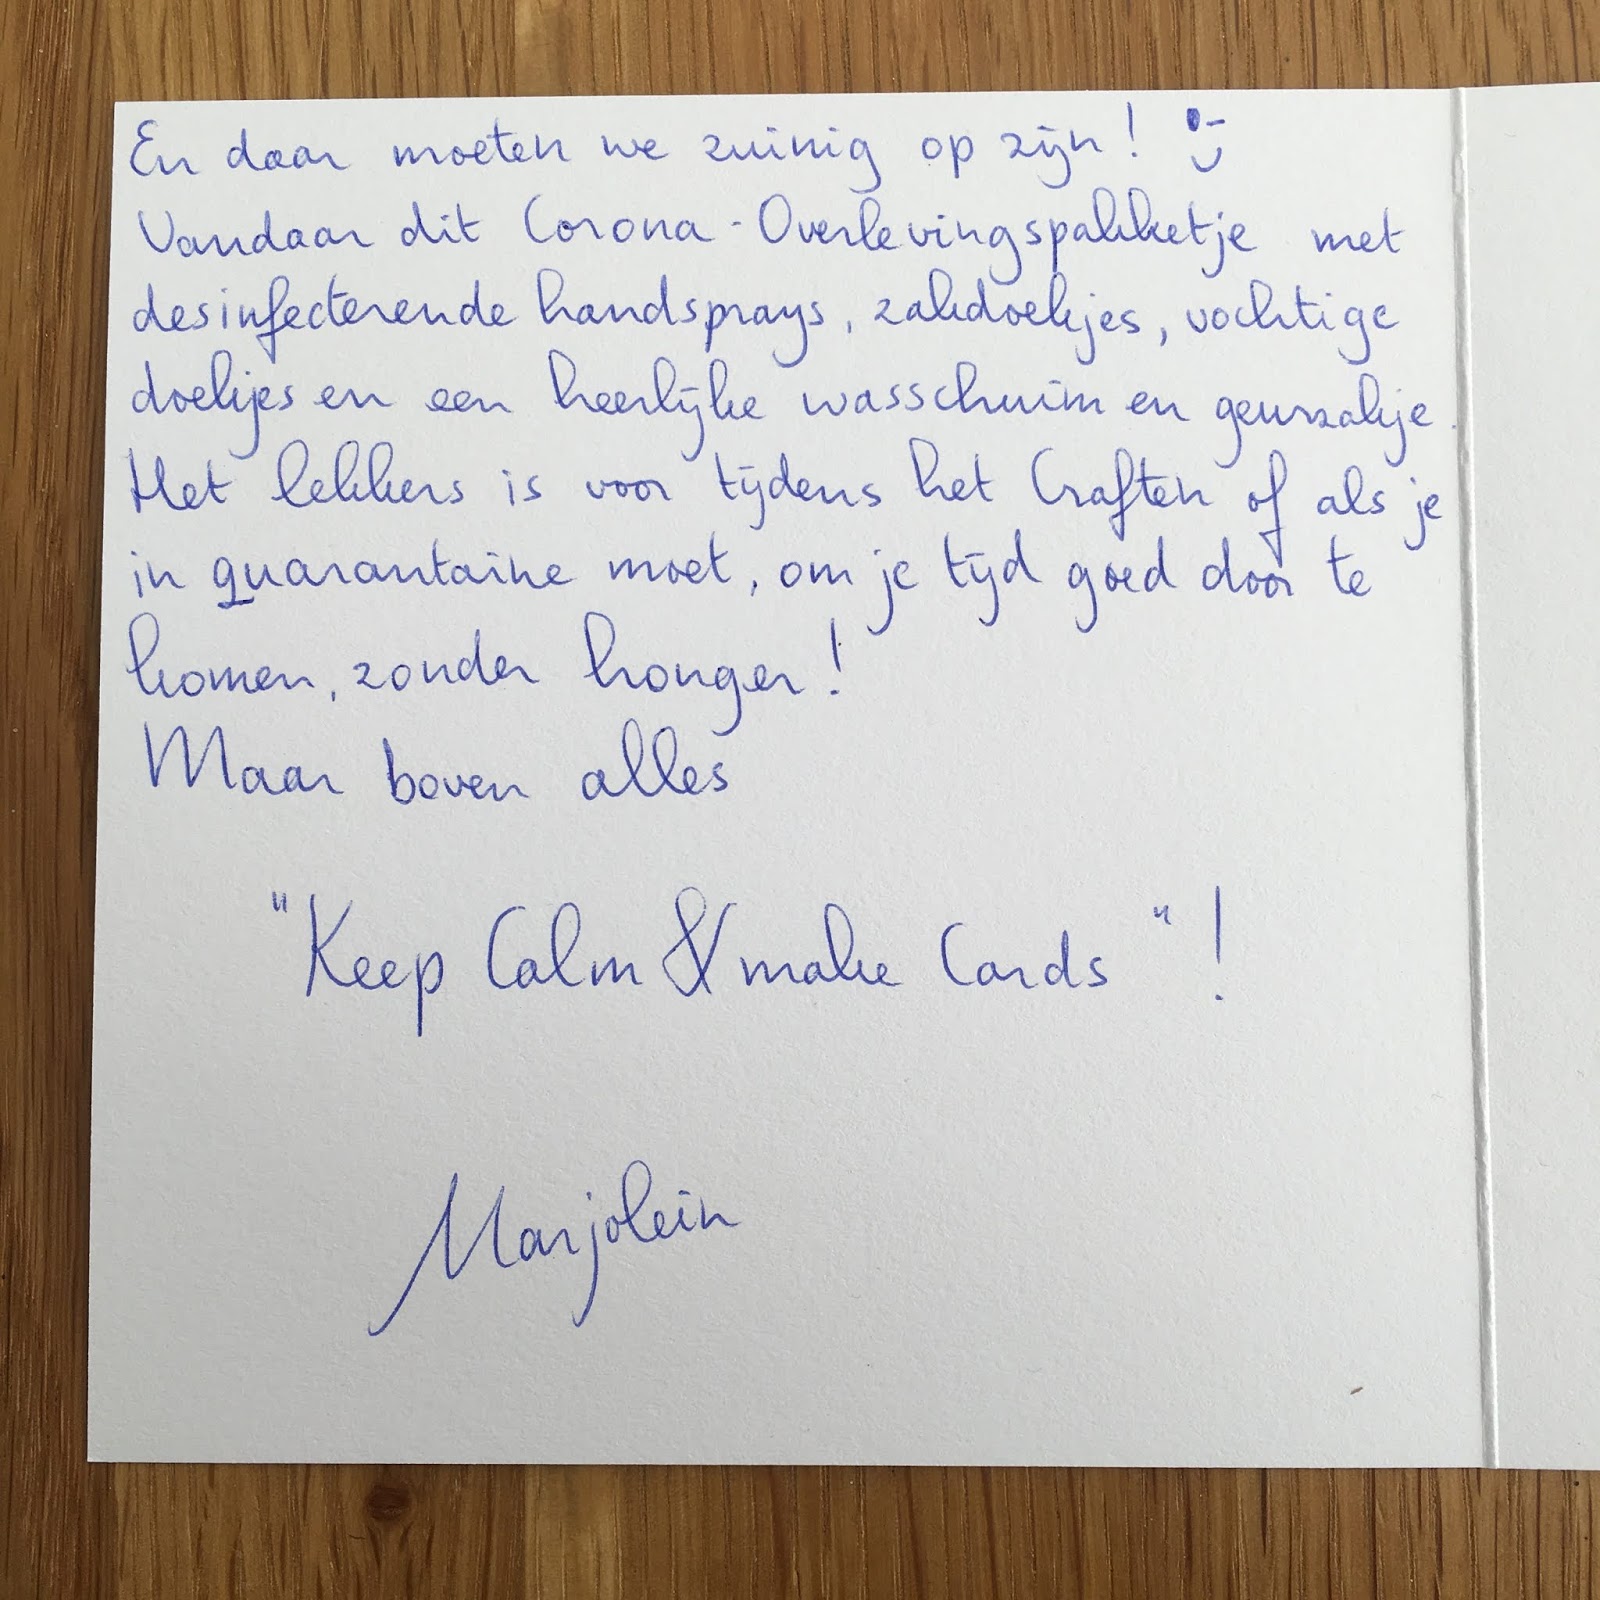 En daar moeten we zuinig op zijn!
Vandaar dit Corona-Overlevingspakketje met
desinfecterende handsprays, zakdoekjes, vochtige
doekjes en een heerlijke wasschuim en geurzakje.
Het lekkers is voor tijdens het Craften of als je
in quarantaine moet, om je tijd goed door te
komen, zonder honger!
Maar boven alles
"Keep Calm & make Cards"!
Marjolein